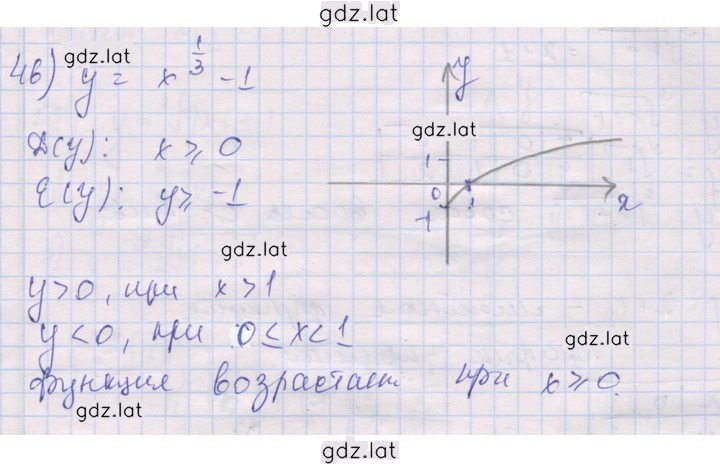 gdz.lat
46) y = x^{1/3} - 1
gdz.lat
y
Д(y): x ≥ 0
gdz.lat
1
E(y): y ≥ -1
0
1
x
-1
gdz.lat
y > 0, при x > 1
y < 0, при 0 ≤ x < 1
gdz.lat
функция возрастает при x ≥ 0.
gdz.lat
gdz.lat